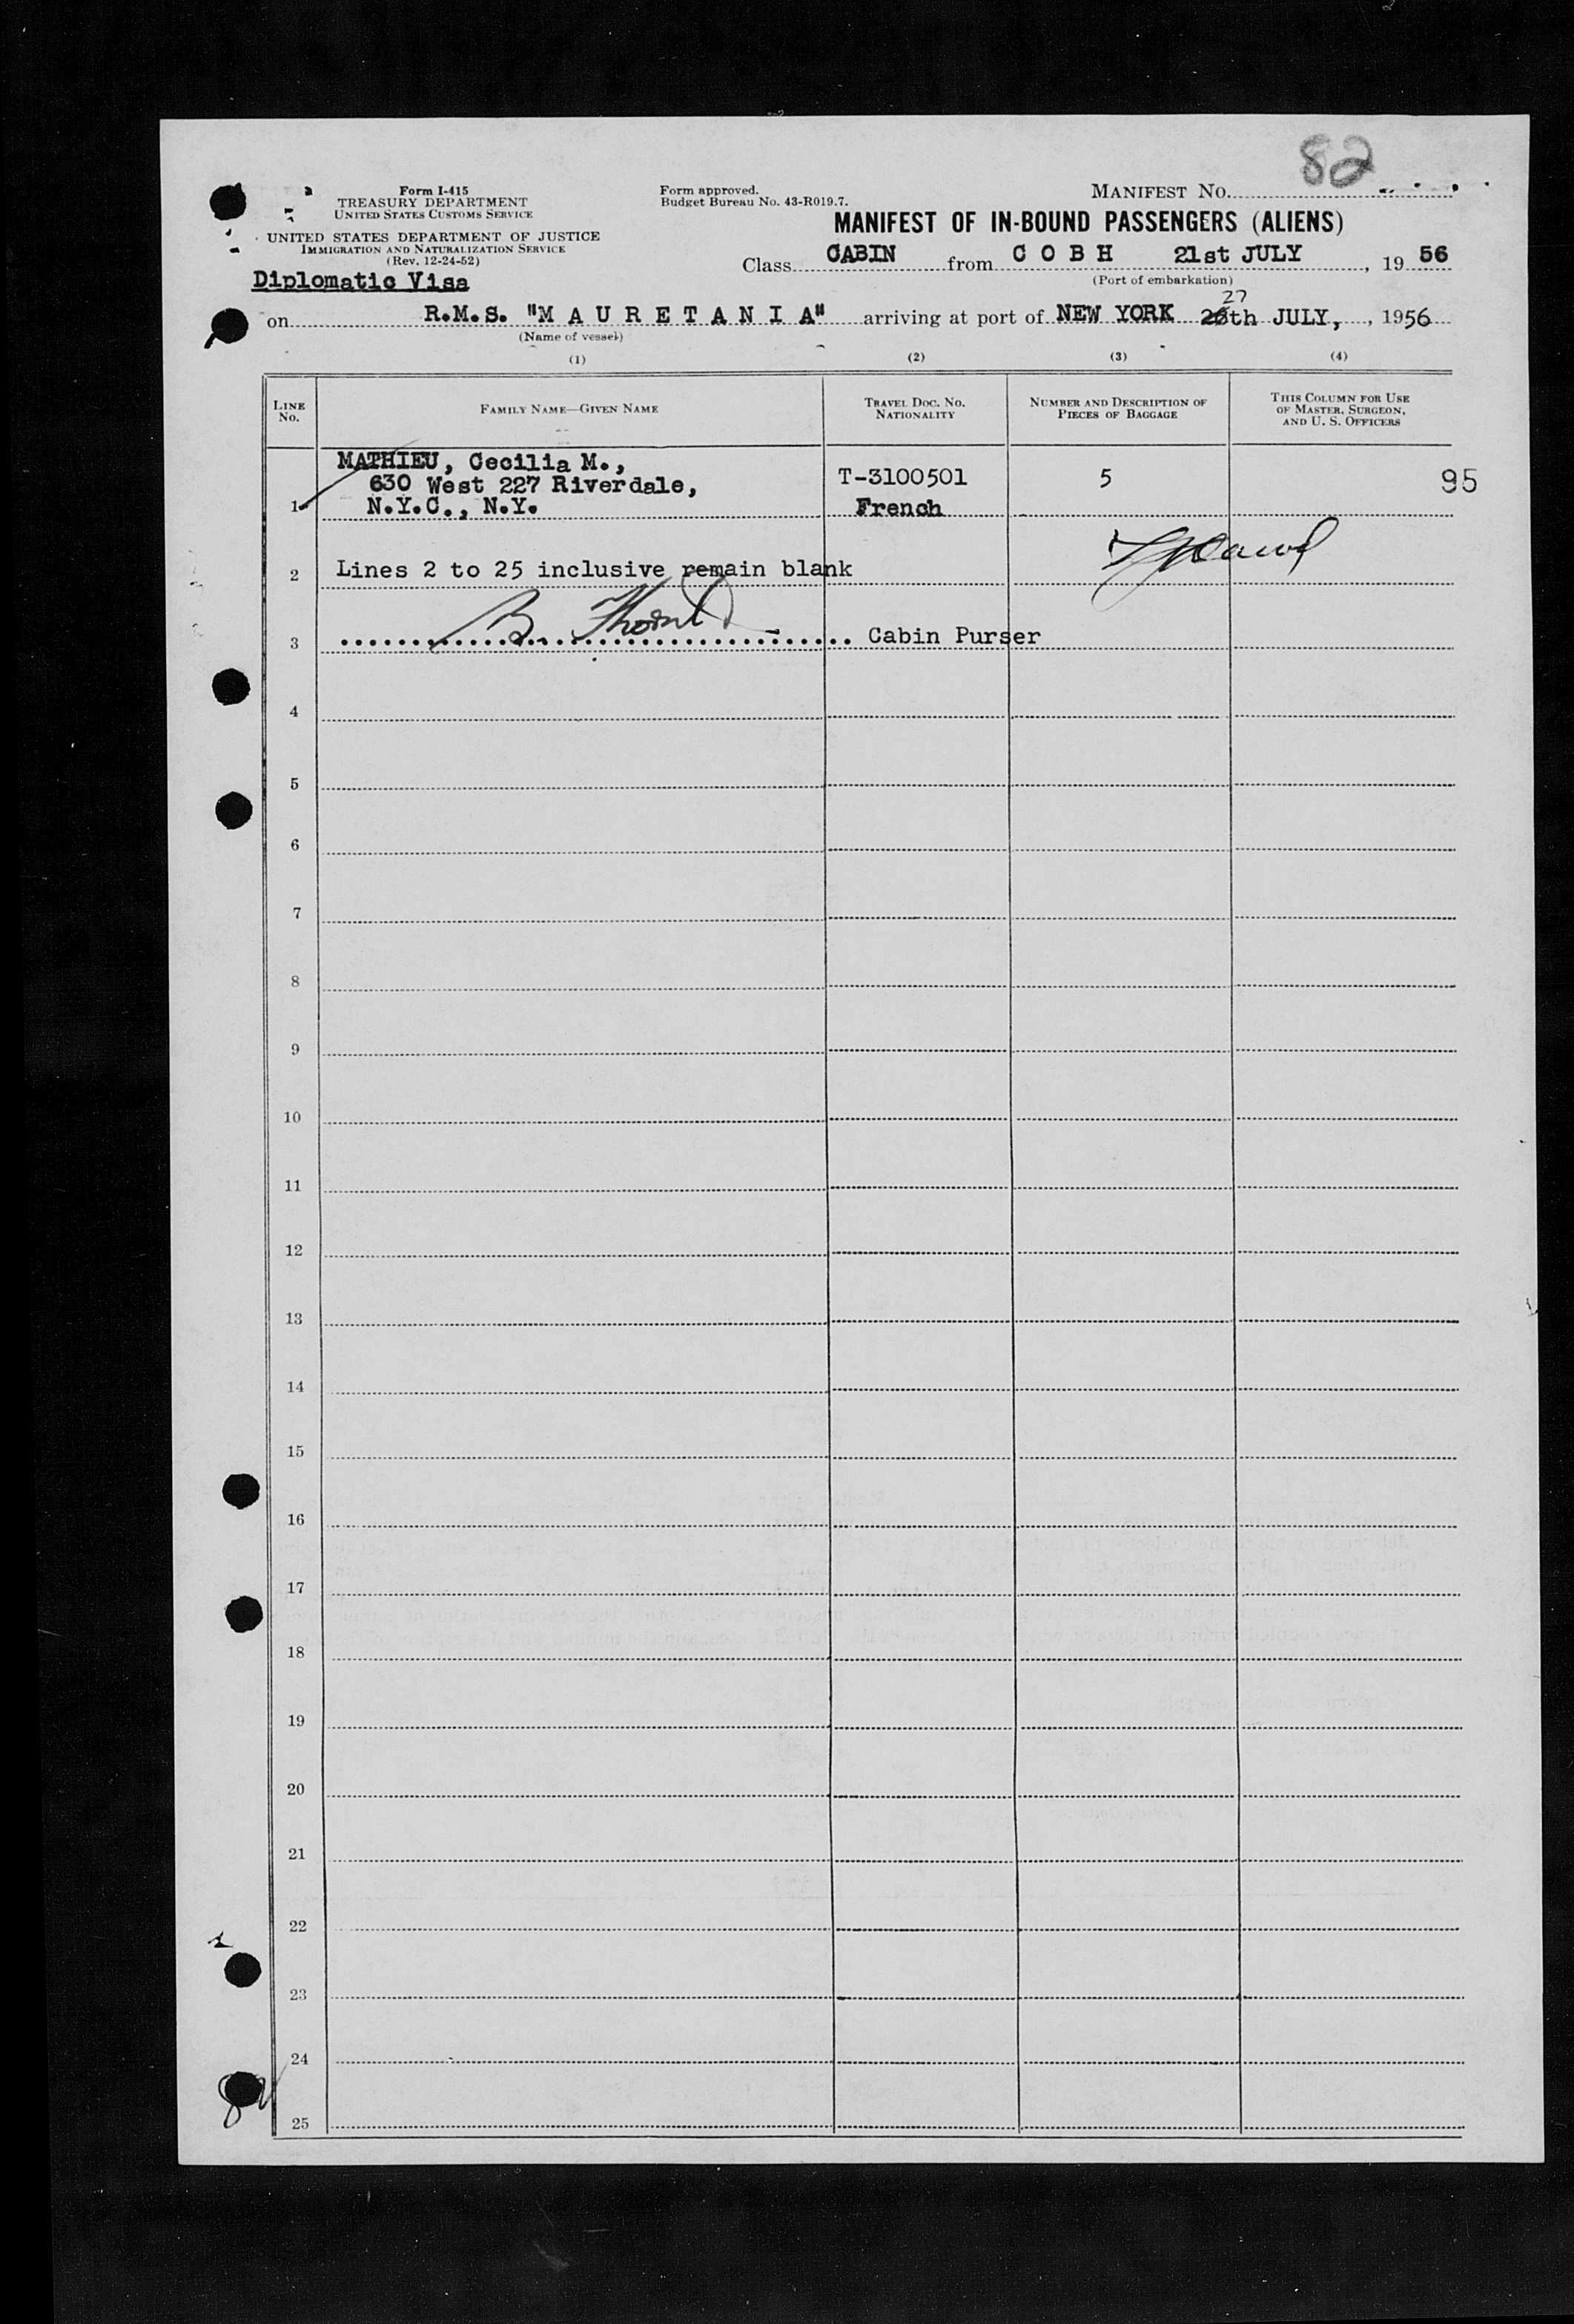 82
Form I-415
TREASURY DEPARTMENT
UNITED STATES CUSTOMS SERVICE
UNITED STATES DEPARTMENT OF JUSTICE
IMMIGRATION AND NATURALIZATION SERVICE
(Rev. 12-24-52)
Form approved.
Budget Bureau No. 43-R019.7.
MANIFEST NO.
MANIFEST OF IN-BOUND PASSENGERS (ALIENS)
Class CABIN from C O B H 21st JULY, 19 56
(Port of embarkation)
Diplomatic Visa
27
on R.M.S. "M A U R E T A N I A" arriving at port of NEW YORK 26th JULY, , 1956
(Name of vessel)
(1) (2) (3) (4)
LINE NO. FAMILY NAME—GIVEN NAME TRAVEL DOC. NO. NATIONALITY NUMBER AND DESCRIPTION OF PIECES OF BAGGAGE THIS COLUMN FOR USE OF MASTER, SURGEON, AND U. S. OFFICERS
MATHIEU, Cecilia M.,
630 West 227 Riverdale, T-3100501 5 95
1 N.Y.C., N.Y. French
2 Lines 2 to 25 inclusive remain blank
3 Cabin Purser
4
5
6
7
8
9
10
11
12
13
14
15
16
17
18
19
20
21
22
23
24
25